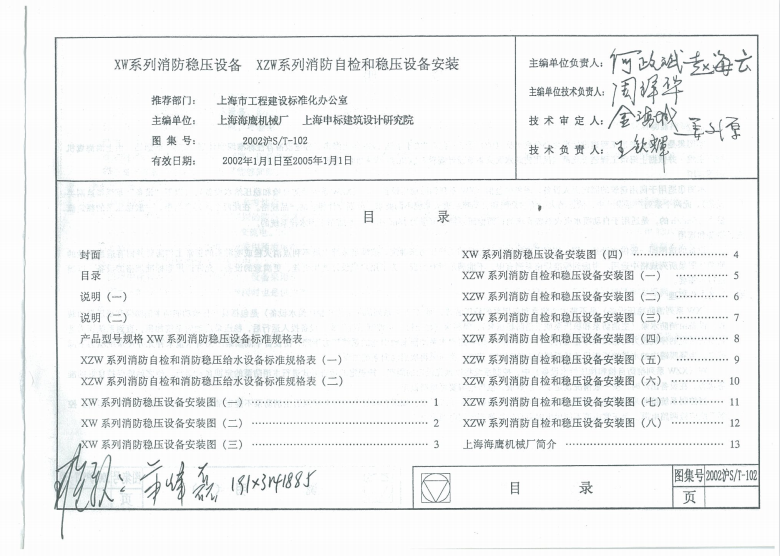 XW系列消防稳压设备 XZW系列消防自检和稳压设备安装
推荐部门: 上海市工程建设标准化办公室
主编单位: 上海海鹰机械厂 上海申标建筑设计研究院
图集号: 2002沪S/T-102
有效日期: 2002年1月1日至2005年1月1日
主编单位负责人: 何政斌 赵海云
主编单位技术负责人: 周锋华
技术审定人:
技术负责人: 王钦辉
目 录
封面
目录
说明（一）
说明（二）
产品型号规格 XW 系列消防稳压设备标准规格表
XZW 系列消防自检和消防稳压给水设备标准规格表（一）
XZW 系列消防自检和消防稳压给水设备标准规格表（二）
XW 系列消防稳压设备安装图（一）………… 1
XW 系列消防稳压设备安装图（二）………… 2
XW 系列消防稳压设备安装图（三）………… 3
XW 系列消防稳压设备安装图（四）………… 4
XZW 系列消防自检和稳压设备安装图（一）………… 5
XZW 系列消防自检和稳压设备安装图（二）………… 6
XZW 系列消防自检和稳压设备安装图（三）………… 7
XZW 系列消防自检和稳压设备安装图（四）………… 8
XZW 系列消防自检和稳压设备安装图（五）………… 9
XZW 系列消防自检和稳压设备安装图（六）………… 10
XZW 系列消防自检和稳压设备安装图（七）………… 11
XZW 系列消防自检和稳压设备安装图（八）………… 12
上海海鹰机械厂简介………… 13
目 录
图集号 2002沪S/T-102
页